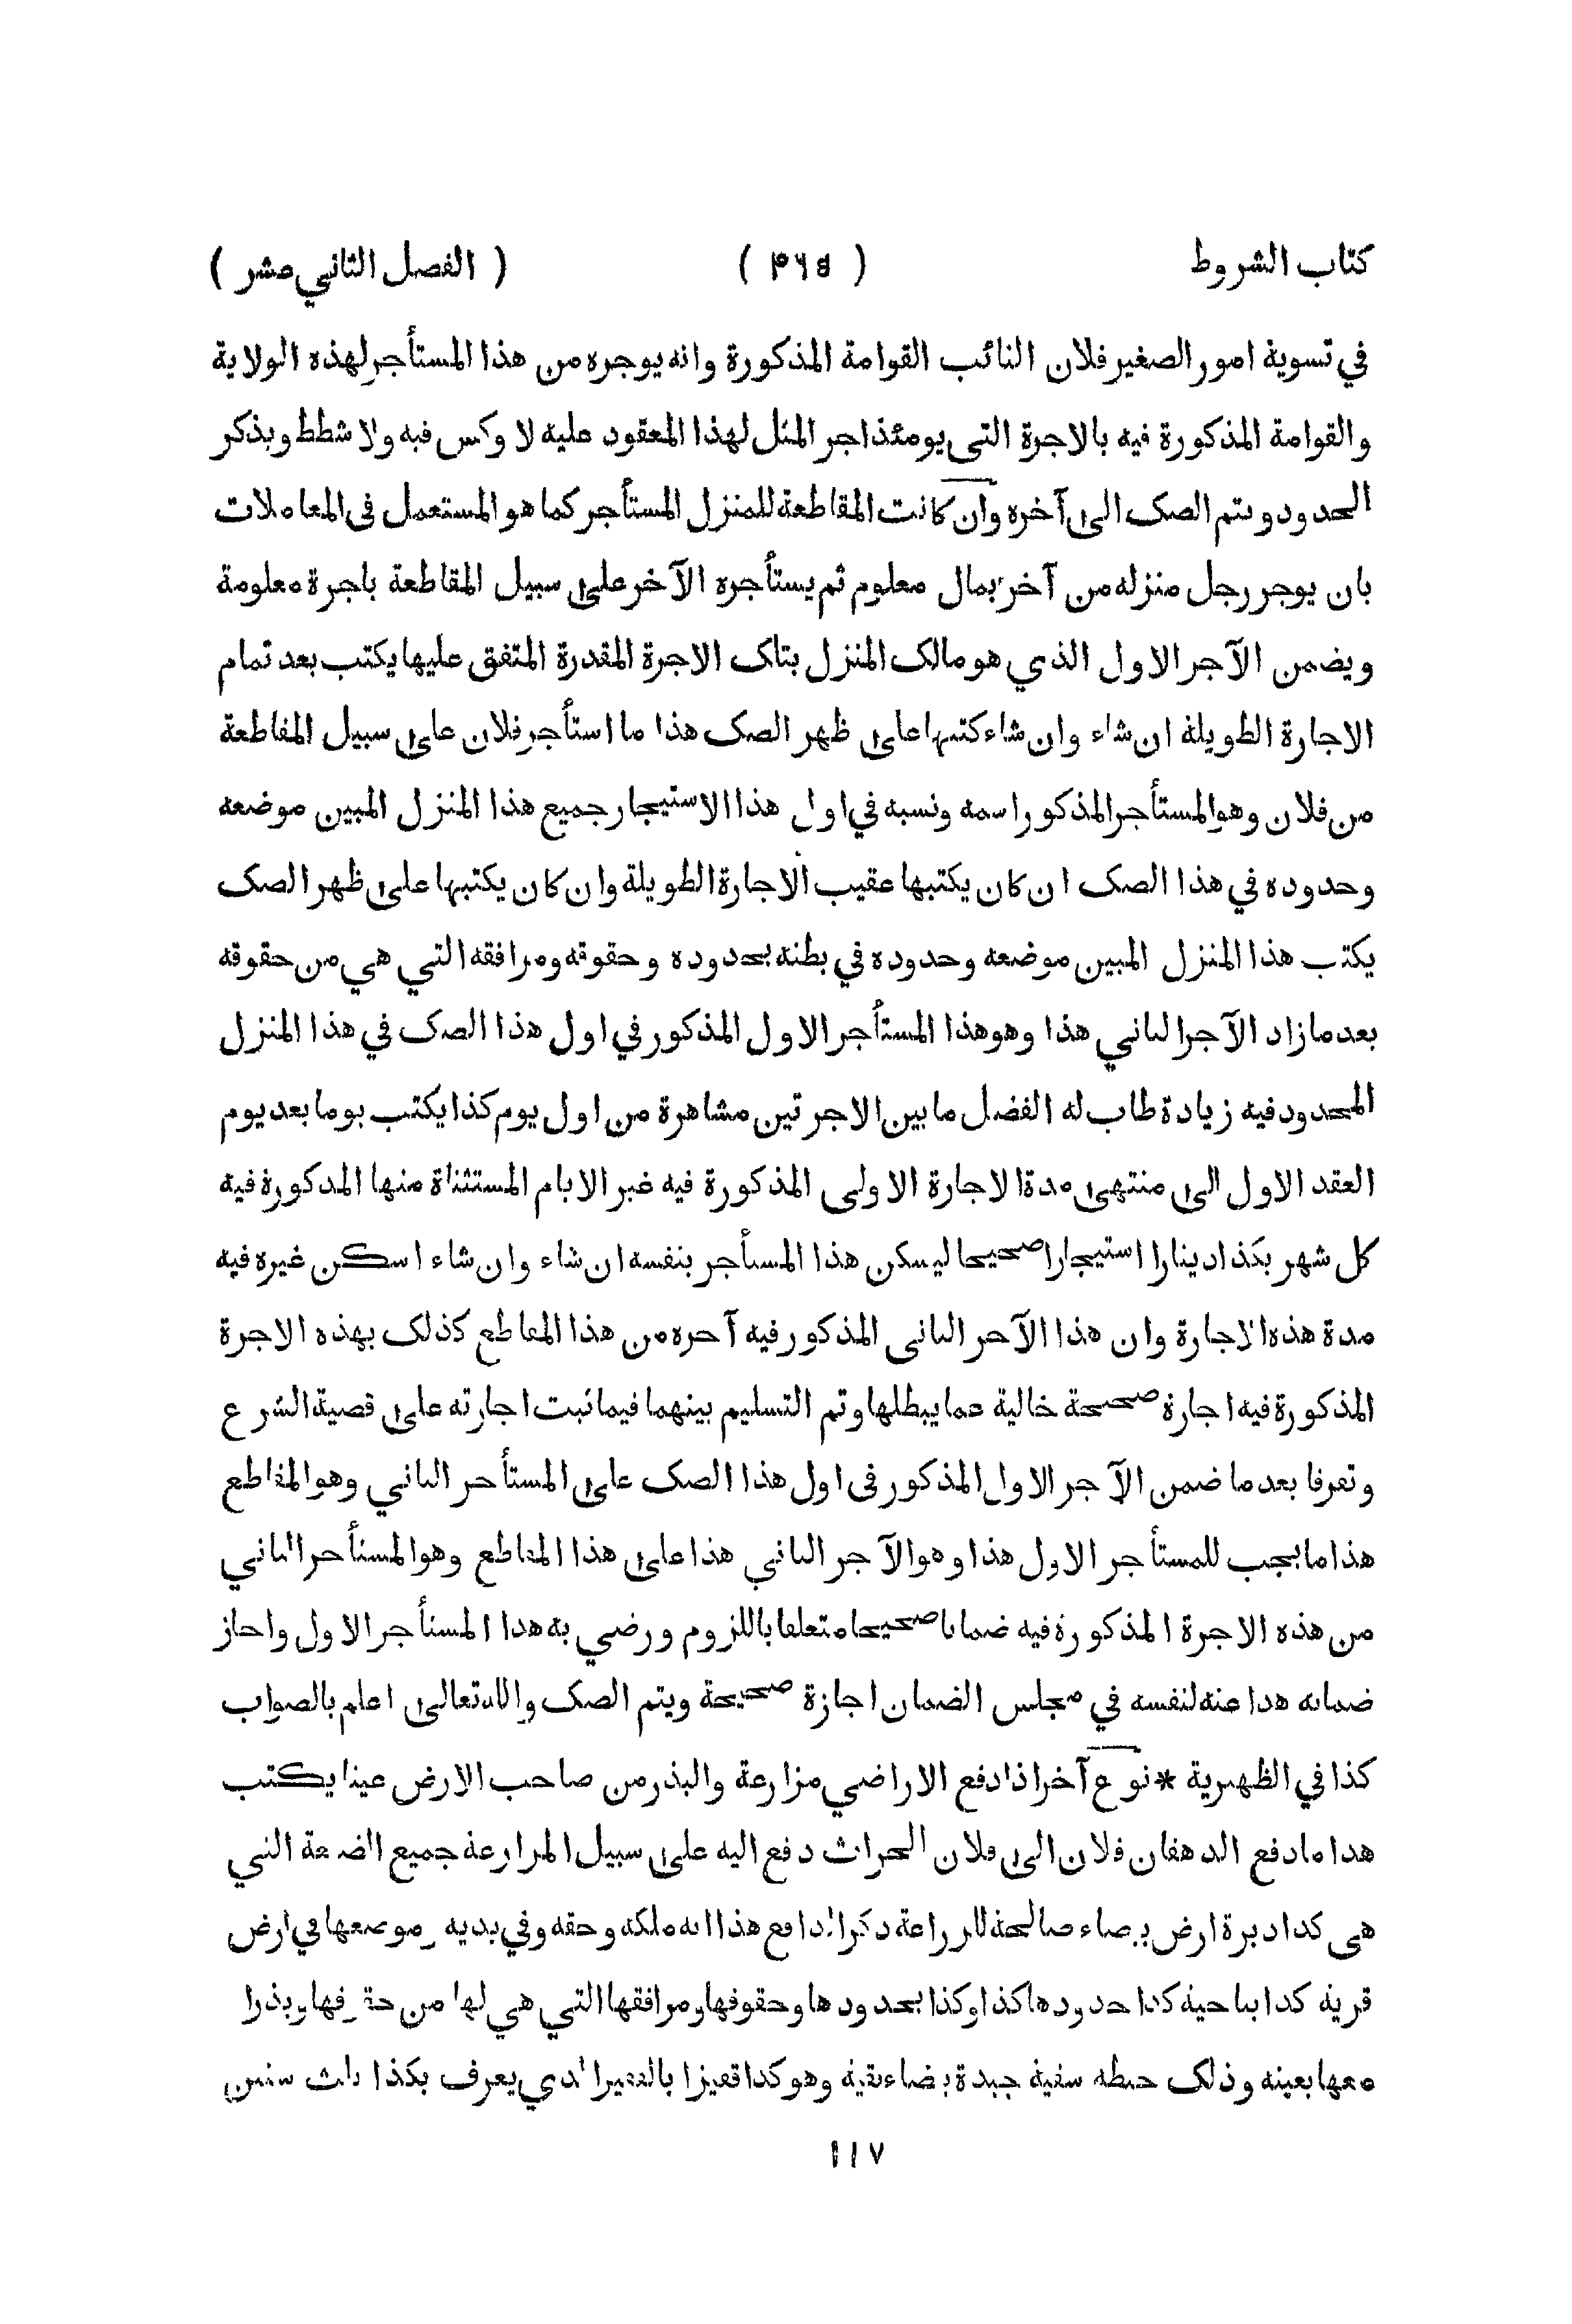 كتاب الشروط ( ٣٦٥ ) ( الفصل الثاني عشر )
في تسوية امور الصغير فلان النائب القوامة المذكورة وانه يوجره من هذا المستأجر لهذه الولاية
والقوامة المذكورة فيه بالاجرة التي يومئذ اجر المثل لهذا المعقود عليه لا وكس فيه ولا شطط ويذكر
الحدود ويتم الصك الى آخره وان كانت المقاطعة للمنزل المستأجر كما هو المستعمل في المعاملات
بان يوجر رجل منزله من آخر بمال معلوم ثم يستأجره الآخر على سبيل المقاطعة باجرة معلومة
ويضمن الآجر الاول الذي هو مالك المنزل بتلك الاجرة المقدرة المتفق عليها يكتب بعد تمام
الاجارة الطويلة ان شاء وان شاء كتبها على ظهر الصك هذا ما استأجر فلان على سبيل المقاطعة
من فلان وهو المستأجر المذكور اسمه ونسبه في اول هذا الاستيجار جميع هذا المنزل المبين موضعه
وحدوده في هذا الصك ان كان يكتبها عقيب الاجارة الطويلة وان كان يكتبها على ظهر الصك
يكتب هذا المنزل المبين موضعه وحدوده في بطنه بحدوده وحقوقه ومرافقه التي هي من حقوقه
بعد ما زاد الآجر الثاني هذا وهو هذا المستأجر الاول المذكور في اول هذا الصك في هذا المنزل
المحدود فيه زيادة طاب له الفضل ما بين الاجرتين مشاهرة من اول يوم كذا يكتب يوما بعد يوم
العقد الاول الى منتهى مدة الاجارة الاولى المذكورة فيه غير الايام المستثناة منها المذكورة فيه
كل شهر بكذا دينارا استيجارا صحيحا ليسكن هذا المستأجر بنفسه ان شاء وان شاء اسكن غيره فيه
مدة هذه الاجارة وان هذا الآجر الثاني المذكور فيه آجره من هذا المقاطع كذلك بهذه الاجرة
المذكورة فيه اجارة صحيحة خالية عما يبطلها وتم التسليم بينهما فيما ثبت اجارته على قضية الشرع
وتفرقا بعد ما ضمن الآجر الاول المذكور في اول هذا الصك على المستأجر الثاني وهو المقاطع
هذا ما يجب للمستأجر الاول هذا وهو الآجر الثاني هذا على هذا المقاطع وهو المستأجر الثاني
من هذه الاجرة المذكورة فيه ضمانا صحيحا متعلقا باللزوم ورضي به هذا المستأجر الاول واجاز
ضمانه هذا عنه لنفسه في مجلس الضمان اجازة صحيحة ويتم الصك والله تعالى اعلم بالصواب
كذا في الظهيرية * نوع آخر اذا دفع الاراضي مزارعة والبذر من صاحب الارض عينا يكتب
هذا ما دفع الدهقان فلان الى فلان الحراث دفع اليه على سبيل المزارعة جميع الضيعة التي
هي كذا دبرة ارض بيضاء صالحة للزراعة ذكر الدافع هذا انه ملكه وحقه وفي يديه وموضعها في ارض
قرية كذا بناحية كذا حدودها كذا وكذا بحدودها وحقوقها ومرافقها التي هي لها من حقوقها وبذرا
معها بعينه وذلك حنطة سقية جيدة بيضاء نقية وهو كذا قفيزا بالقفيز الذي يعرف بكذا ثلث سنين
١١٧